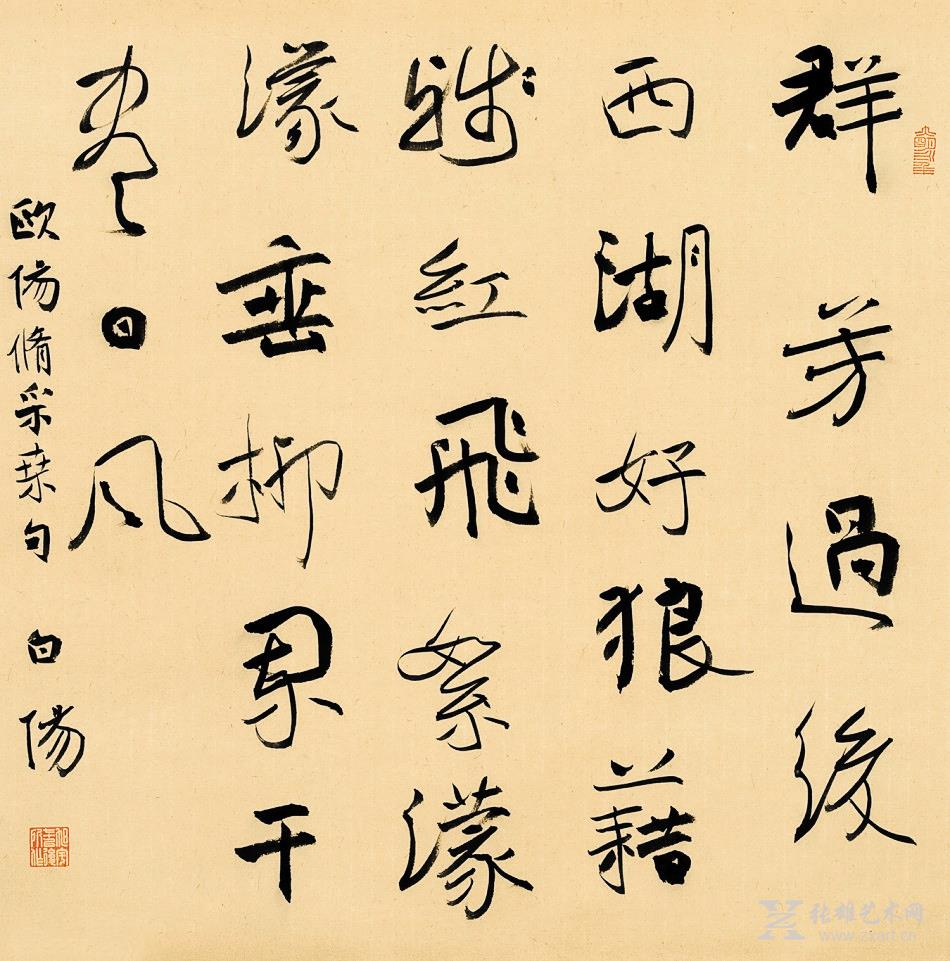 群芳過後
西湖好狼藉
殘紅飛絮濛
濛垂柳闌干
盡日風
歐陽脩采桑句 白陽
张雄艺术网
www.zxart.cn